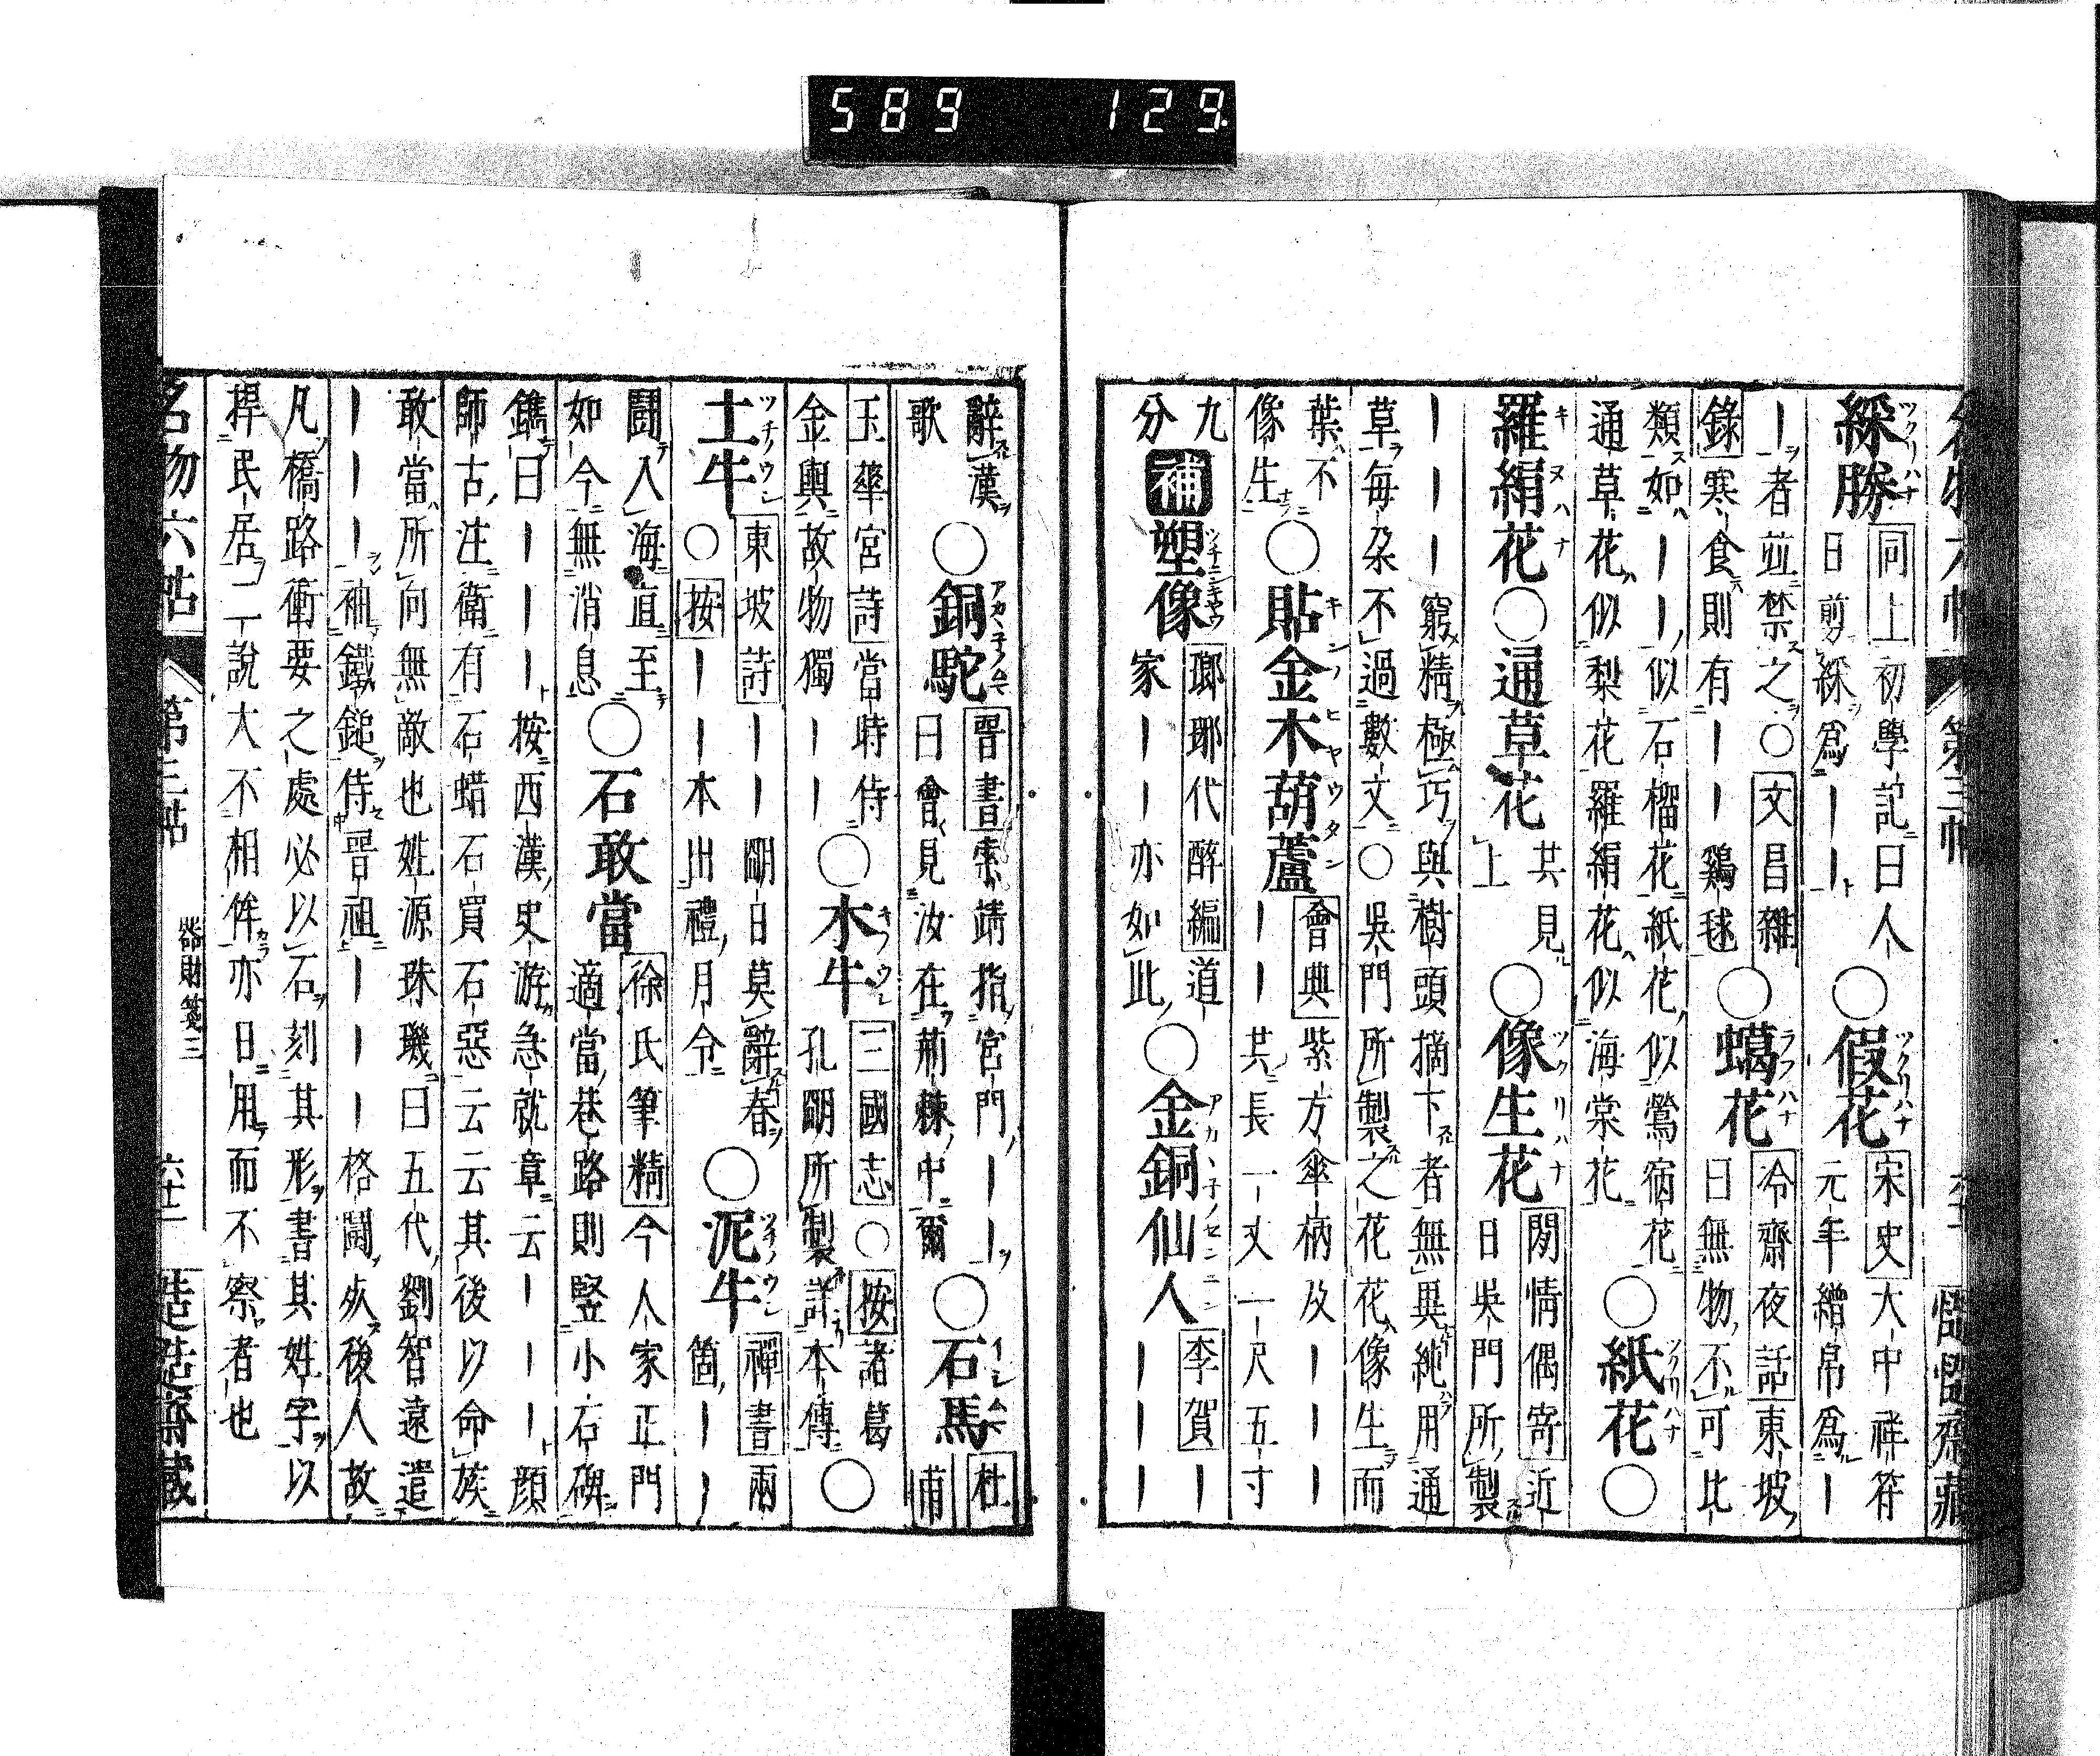 綵勝
同上初學記曰人
日剪綵爲｜｜
○假花
宋史大中祥符
元年繒帛爲｜
｜者並禁之○文昌雜
錄寒食則有｜｜鷄毬
○蠟花
冷齋夜話東坡
曰無物不可比
類如｜｜似石榴花紙花似鶯宿花
通草花似梨花羅絹花似海棠花
○紙花○
羅絹花○通草花
共見
上
○像生花
閒情偶寄近
日吳門所製
｜｜｜窮精極巧與樹頭摘下者無異純用通
草每朶不過數文○吳門所製之花花像生而
葉不
像生
○貼金木葫蘆
會典紫方傘柄及｜｜
｜｜其長一丈一尺五寸
九
分
補塑像
瑯琊代醉編道
家｜｜亦如此
○金銅仙人
李賀｜
｜｜｜
辭漢
歌
○銅駝
晋書索靖指宮門｜｜
曰會見汝在荊棘中爾
○石馬
杜
甫
玉華宮詩當時侍
金輿故物獨｜｜
○木牛
三國志○按諸葛
孔明所製詳本傳
○
土牛
東坡詩｜｜明日莫辭春
○按｜｜本出禮月令
○泥牛
禪書兩
箇｜｜
鬪入海直至
如今無消息
○石敢當
徐氏筆精今人家正門
適當巷路則竪小石碑
鐫曰｜｜｜按西漢史游急就章云｜｜｜顔
師古注衛有石蜡石買石惡云云其後以命族
敢當所向無敵也姓源珠璣曰五代劉智遠遣
｜｜｜袖鐵鎚侍晋祖｜｜｜格鬪死後人故
凡橋路衝要之處必以石刻其形書其姓字以
捍民居二說大不相侔亦日用而不察者也
名物六帖 第三帖 器財箋三 六十二
589 129